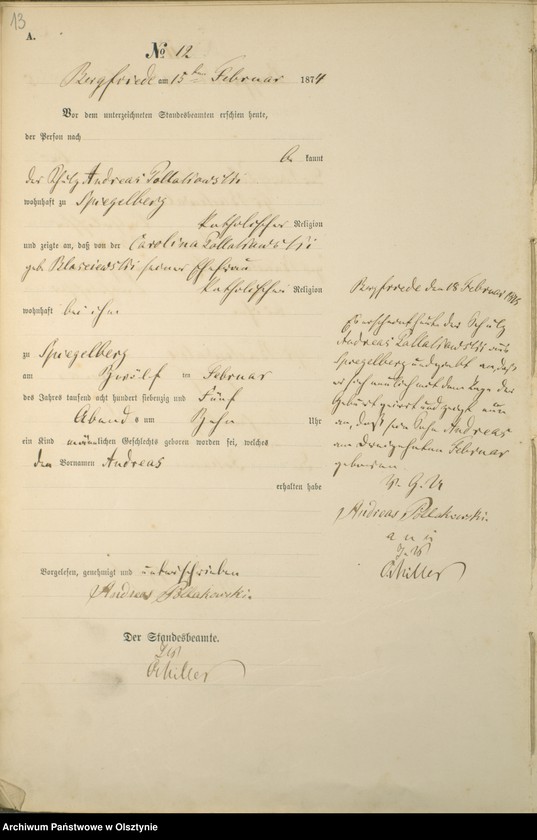 13
A.
№ 12
Bergfriede am 15ten Februar 1874
Vor dem unterzeichneten Standesbeamten erschien heute,
der Person nach
be kannt
der Schulz Andreas Pollakowski
wohnhaft zu Spiegelberg
katholischer Religion
und zeigte an, daß von der Carolina Pollakowski
geb. Blasiewski seiner Ehefrau
katholischer Religion
wohnhaft bei ihm
zu Spiegelberg
am Zwölf ten Februar
des Jahres tausend acht hundert siebenzig und Fünf
Abends um Zehn Uhr
ein Kind männlichen Geschlechts geboren worden sei, welches
den Vornamen Andreas
erhalten habe
Vorgelesen, genehmigt und unterschrieben
Andreas Pollakowski
Der Standesbeamte.
Schiller
Bergfriede den 18 Februar 1875
Es erscheint heut der Schulz
Andreas Pollakowski aus
Spiegelberg und giebt an, daß
er sich neulich mit dem Tage der
Geburt geirrt und zeigt nun
an, daß sein Sohn Andreas
am dreizehnten Februar
geboren.
V. G. U.
Andreas Pollakowski
a u s
Schiller
Archiwum Państwowe w Olsztynie